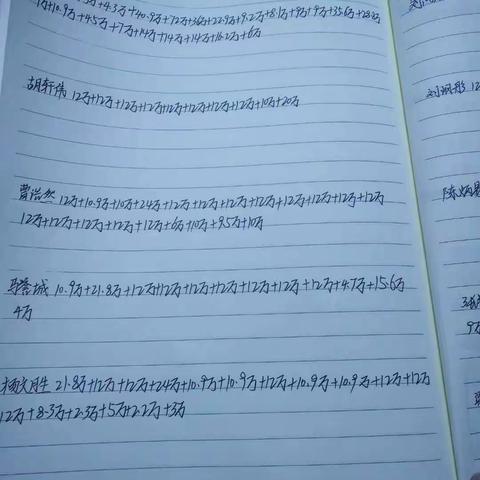 万+4.3万+40.9万+12万+36万+22.9万+9.2万+8.1万+9万+9万+35.6万+28.2万
万+10.9万+4.5万+7万+14万+14万+14万+16.2万+6万
胡轩伟 12万+12万+12万+12万+12万+12万+12万+12万+10万+20万
曹浩然 12万+10.9万+10万+24万+12万+12万+12万+12万+12万+12万+12万+12万
12万+12万+12万+12万+12万+6万+10万+9.5万+10万
马誉城 10.9万+21.8万+12万+12万+12万+12万+12万+12万+12万+4.7万+15.6万
4万
杨文胜 21.8万+12万+12万+24万+10.9万+10.9万+12万+10.9万+10.9万+12万+12万
12万+8.3万+2.3万+5万+2.2万+3万
刘
12
陈炳
9万